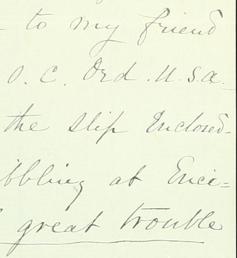 to my friend
O. C. Ord. U.S.A.
the slip Enclosed-
bbling at Enci=
great trouble